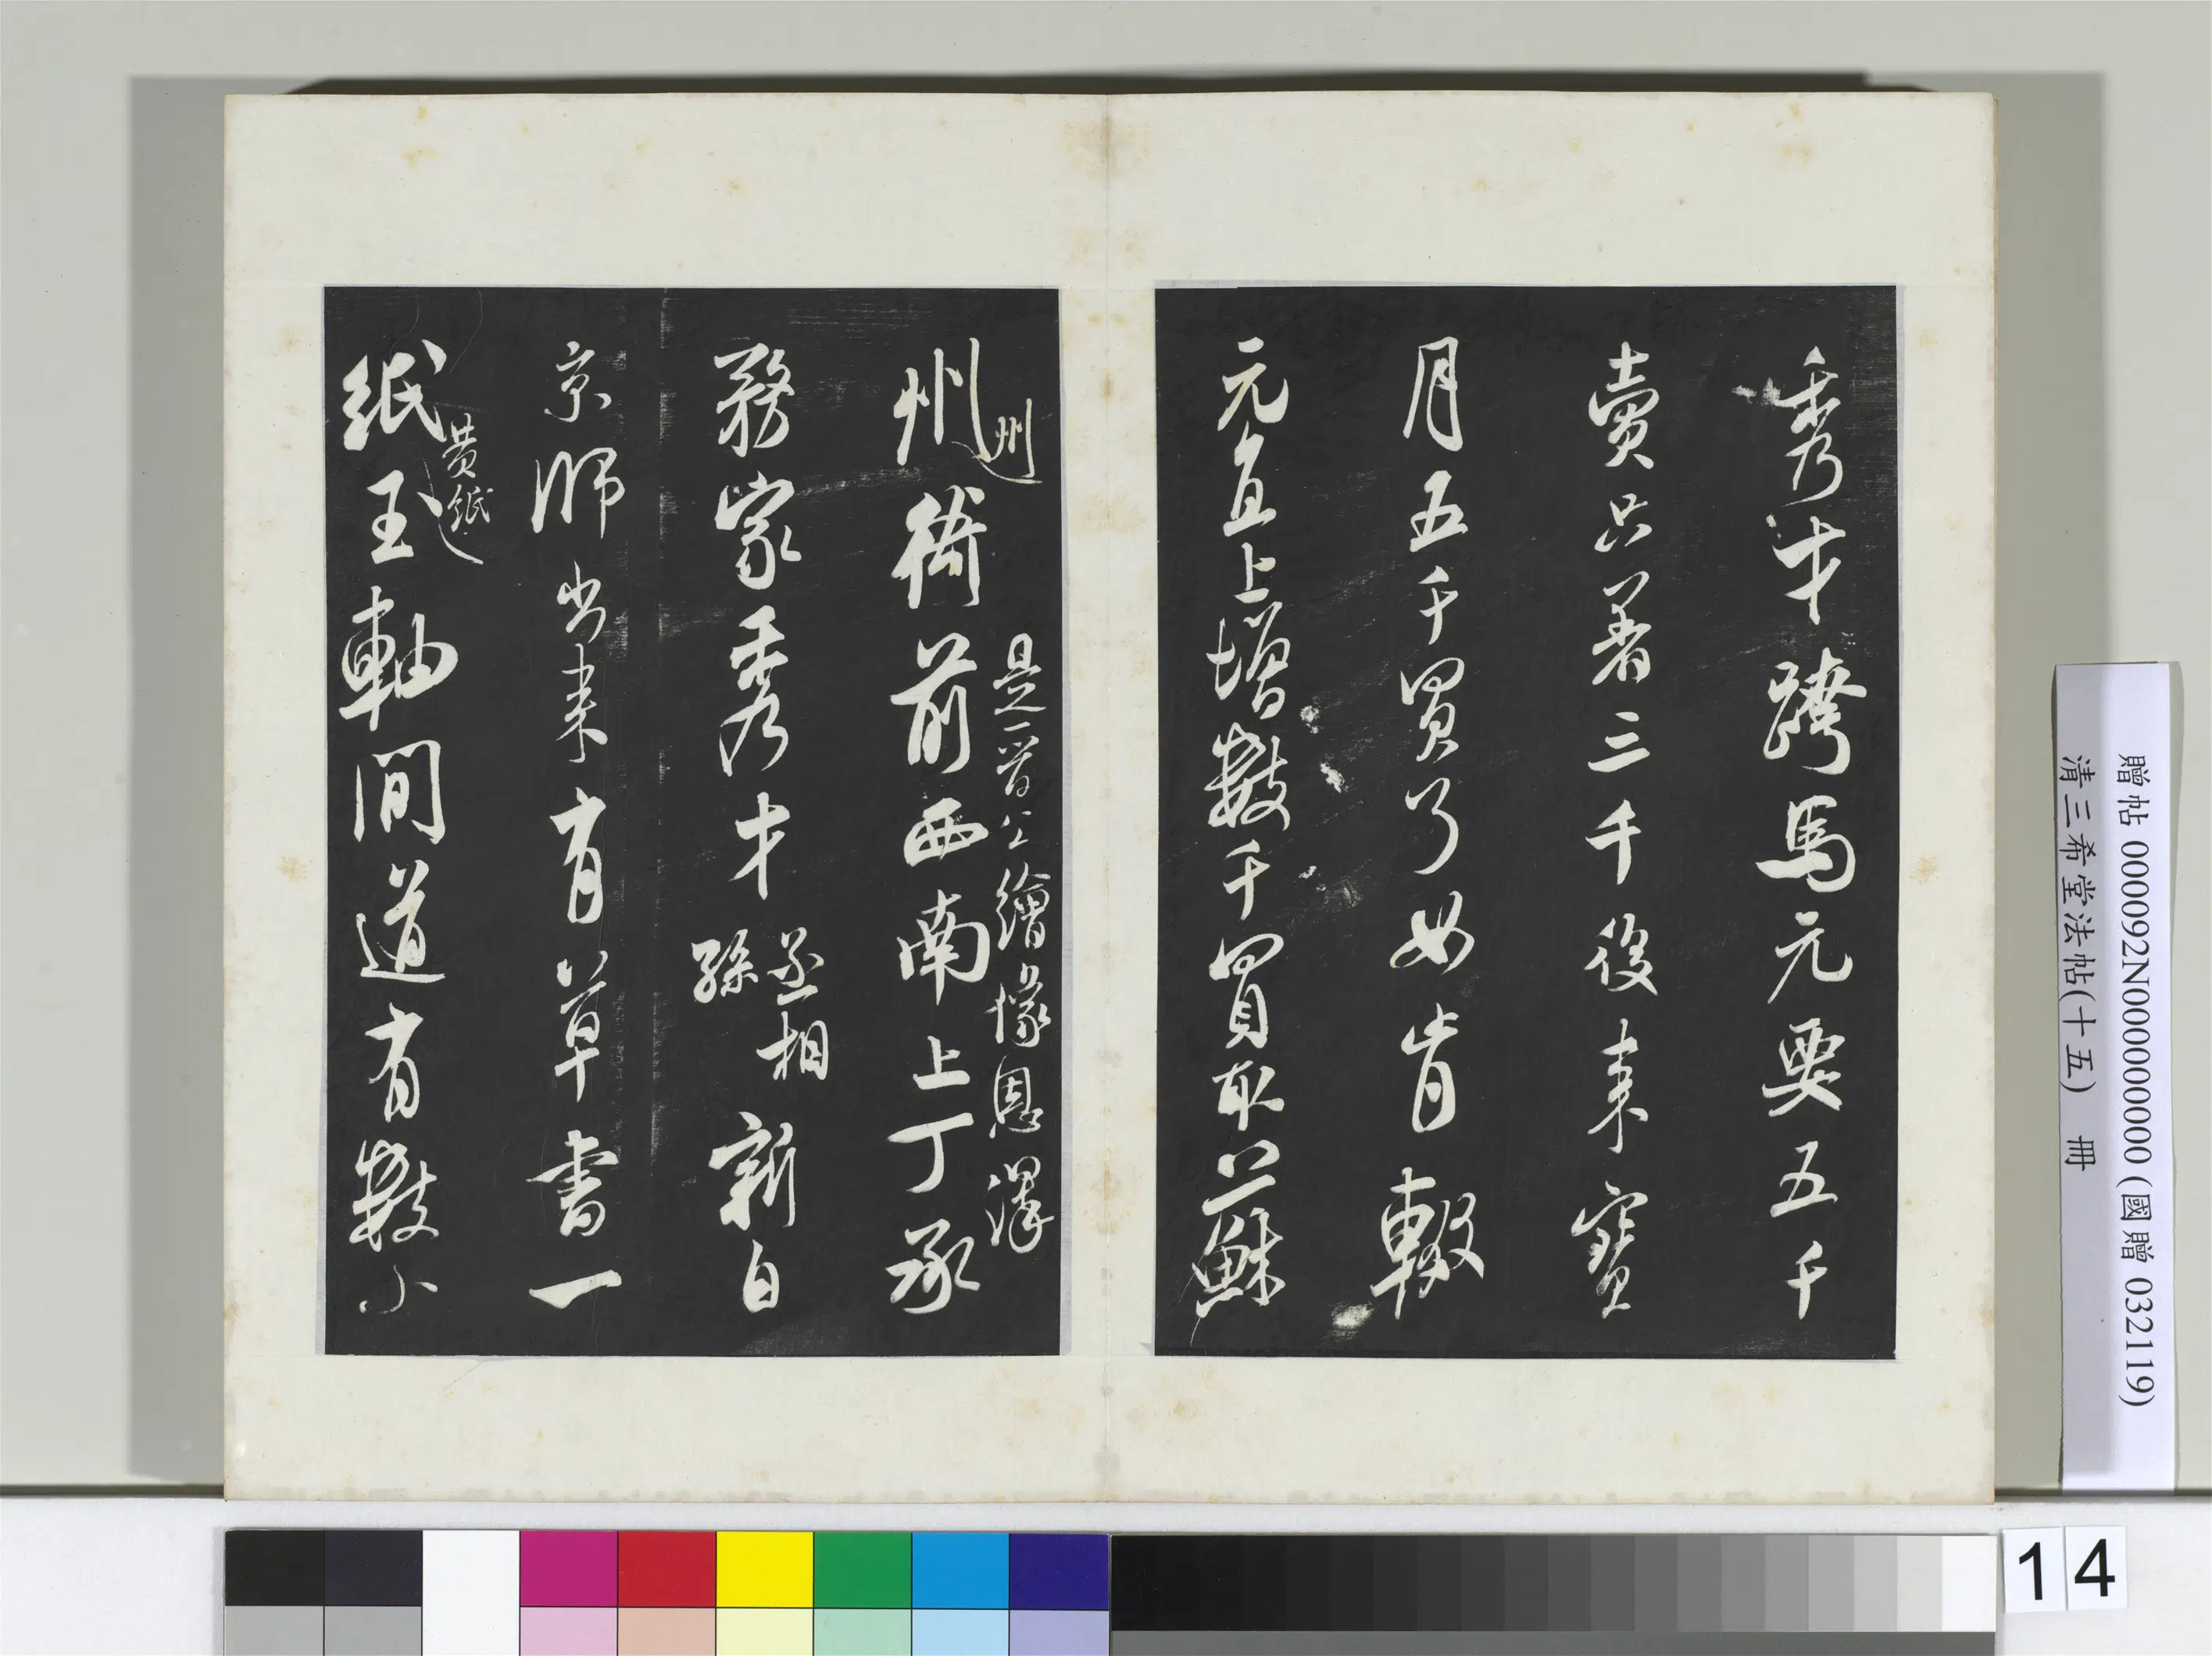 秀才躋馬元要五千
賣只著三千後来寶
月五千買了如肯輟
元直上增數千買取蘇
州
是晉公繪像恩澤
州衙前西南上丁承
務家秀才丞相孫新自
京師出来有草書一
黄紙
紙玉軸間道有數小
贈帖 000092N000000000 (國贈 032119)
清三希堂法帖(十五) 冊
14